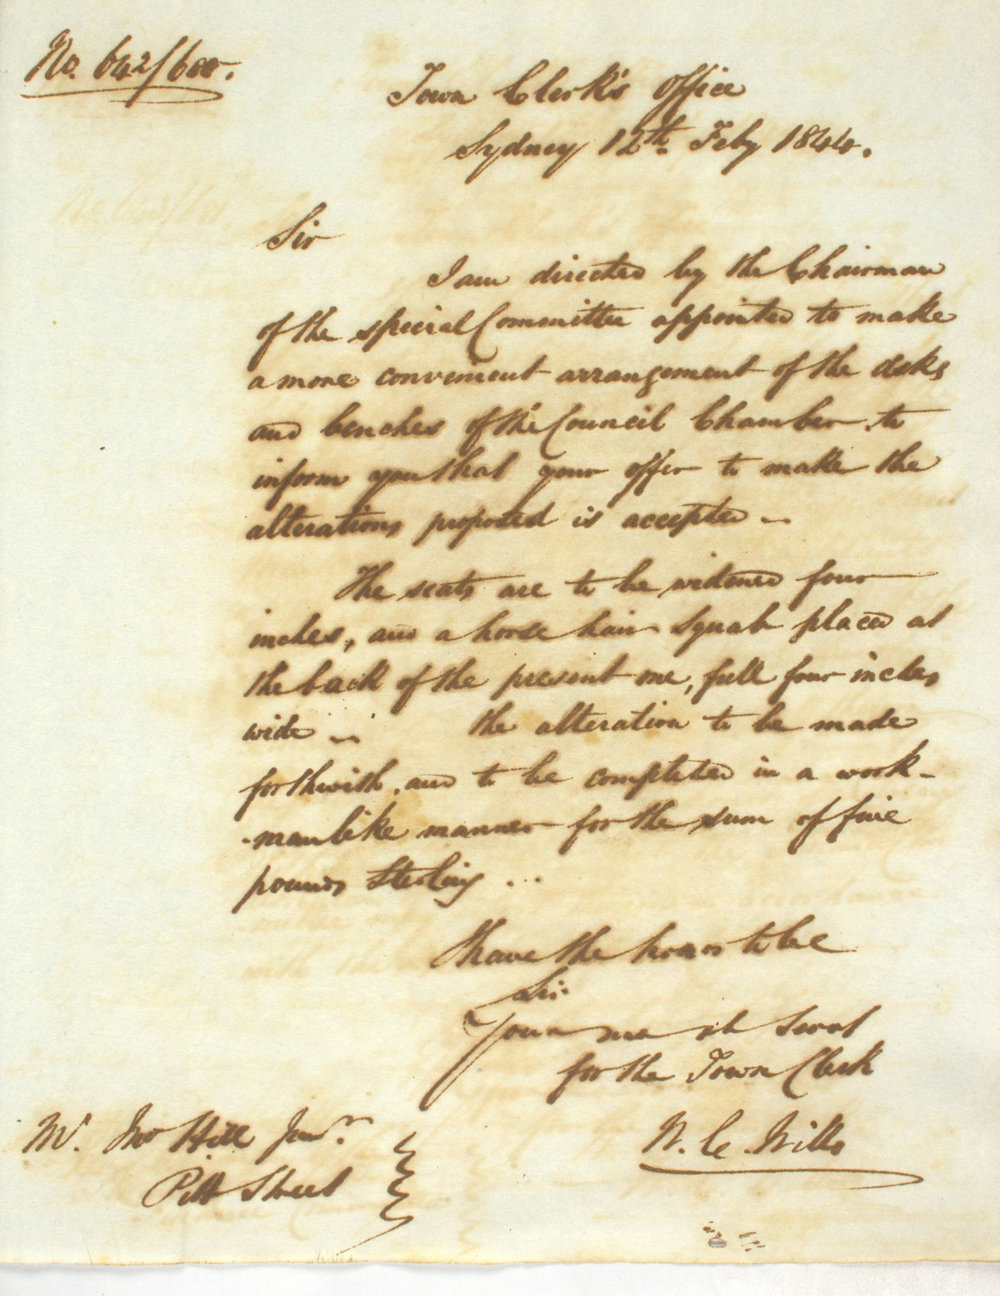 No. 642/600.
Town Clerk's Office
Sydney 12th. Feby 1844.
Sir
I am directed by the Chairman
of the special Committee appointed to make
a more convenient arrangement of the desks
and benches of the Council Chamber to
inform you that your offer to make the
alterations proposed is accepted –
The seats are to be widened four
inches, and a horse hair squab placed at
the back of the present one, full four inches
wide – the alteration to be made
forthwith, and to be completed in a work-
-manlike manner for the sum of five
pounds Sterling ...
I have the honor to be
Sir
Your servt
for the Town Clerk
W. C. Wills
Mr. Jno Hill Junr.
Pitt Street